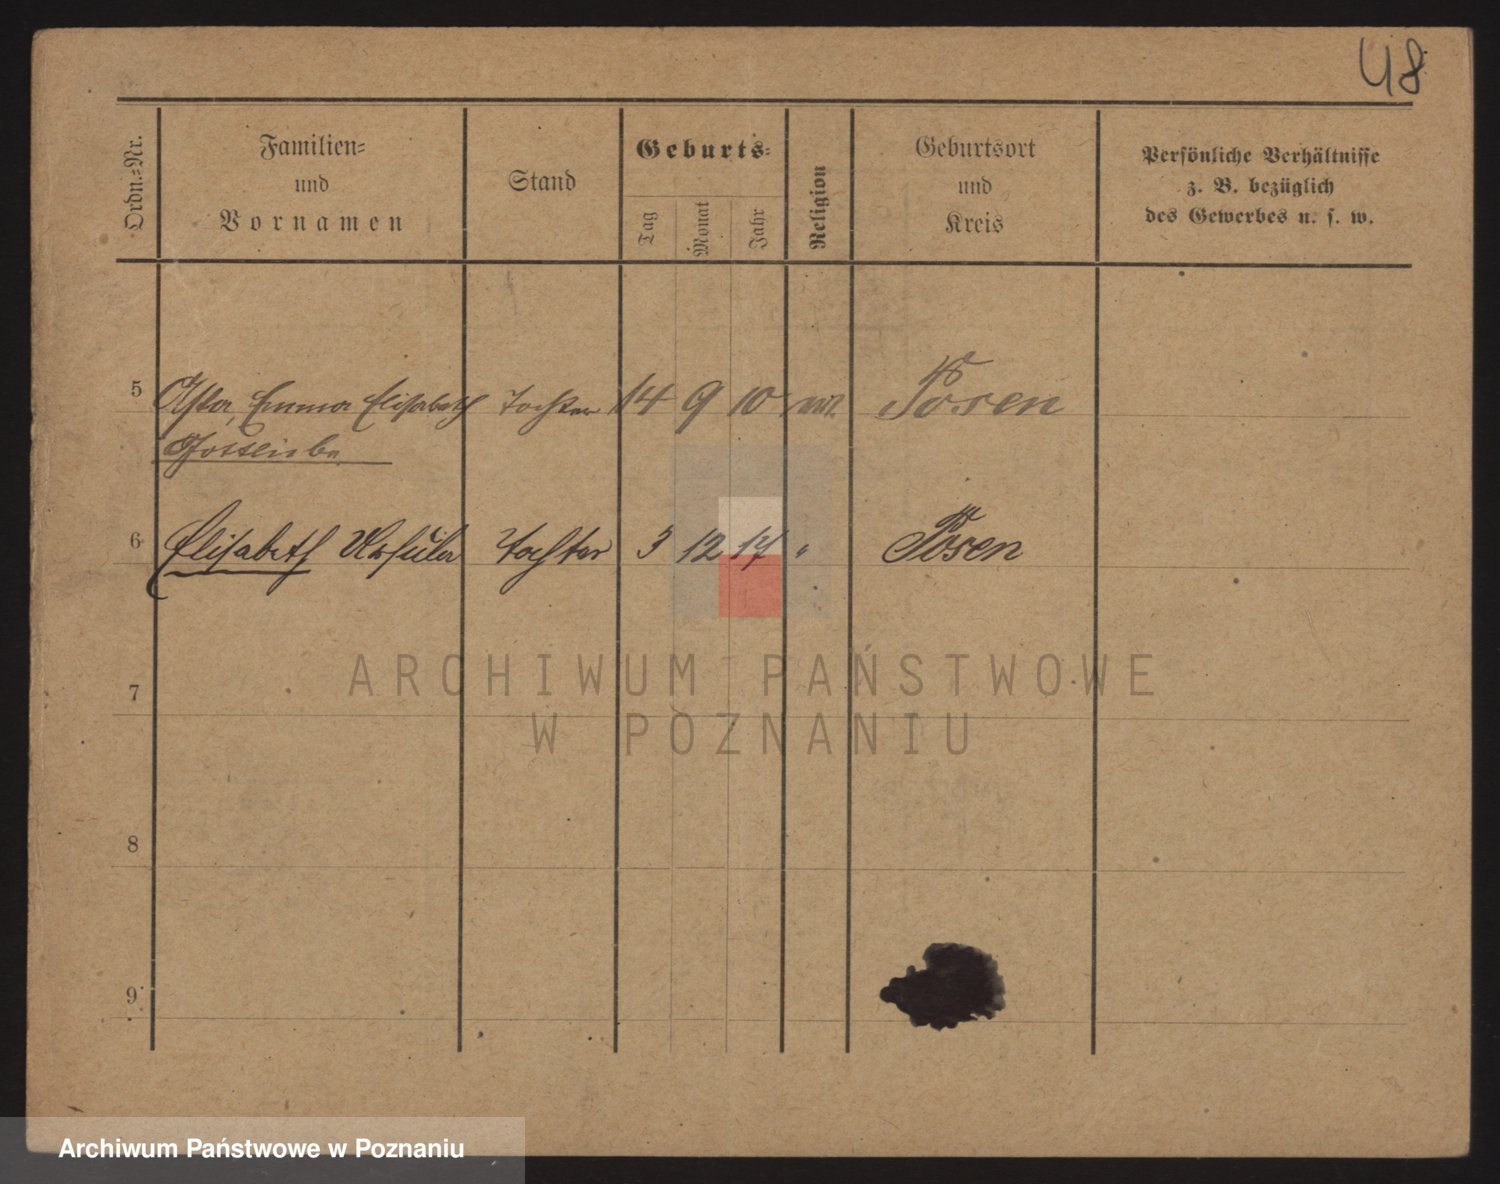 48
Ordn.-Nr.
Familien-
und
Vornamen
Stand
Geburts-
Tag
Monat
Jahr
Religion
Geburtsort
und
Kreis
Persönliche Verhältnisse
z. B. bezüglich
des Gewerbes u. s. w.
5 Emma Elisabeth Tochter 14 9 10 Posen
6 Elisabeth Ursula Tochter 3 12 17 " Posen
ARCHIWUM PAŃSTWOWE
7
W POZNANIU
8
9
Archiwum Państwowe w Poznaniu